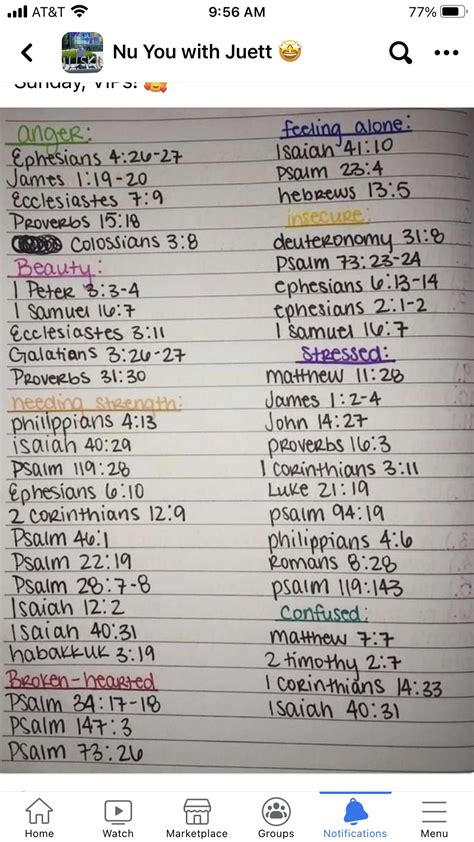 AT&T 9:56 AM 77%
Nu You with Juett 🤩
Sunday, VIPs! 🥰
anger:
Ephesians 4:26-27
James 1:19-20
Ecclesiastes 7:9
Proverbs 15:18
Colossians 3:8
Beauty:
1 Peter 3:3-4
1 Samuel 16:7
Ecclesiastes 3:11
Galatians 3:26-27
Proverbs 31:30
needing strength:
philippians 4:13
isaiah 40:29
Psalm 119:28
Ephesians 6:10
2 corinthians 12:9
Psalm 46:1
Psalm 22:19
Psalm 28:7-8
Isaiah 12:2
Isaiah 40:31
habakkuk 3:19
Broken-hearted
Psalm 34:17-18
Psalm 147:3
Psalm 73:26
feeling alone:
Isaiah 41:10
Psalm 23:4
hebrews 13:5
insecure:
deuteronomy 31:8
Psalm 73:23-24
ephesians 6:13-14
ephesians 2:1-2
1 Samuel 16:7
Stressed:
matthew 11:28
James 1:2-4
John 14:27
proverbs 16:3
1 corinthians 3:11
Luke 21:19
psalm 94:19
philippians 4:6
Romans 8:28
psalm 119:143
Confused:
matthew 7:7
2 timothy 2:7
1 corinthians 14:33
Isaiah 40:31
Home Watch Marketplace Groups Notifications Menu